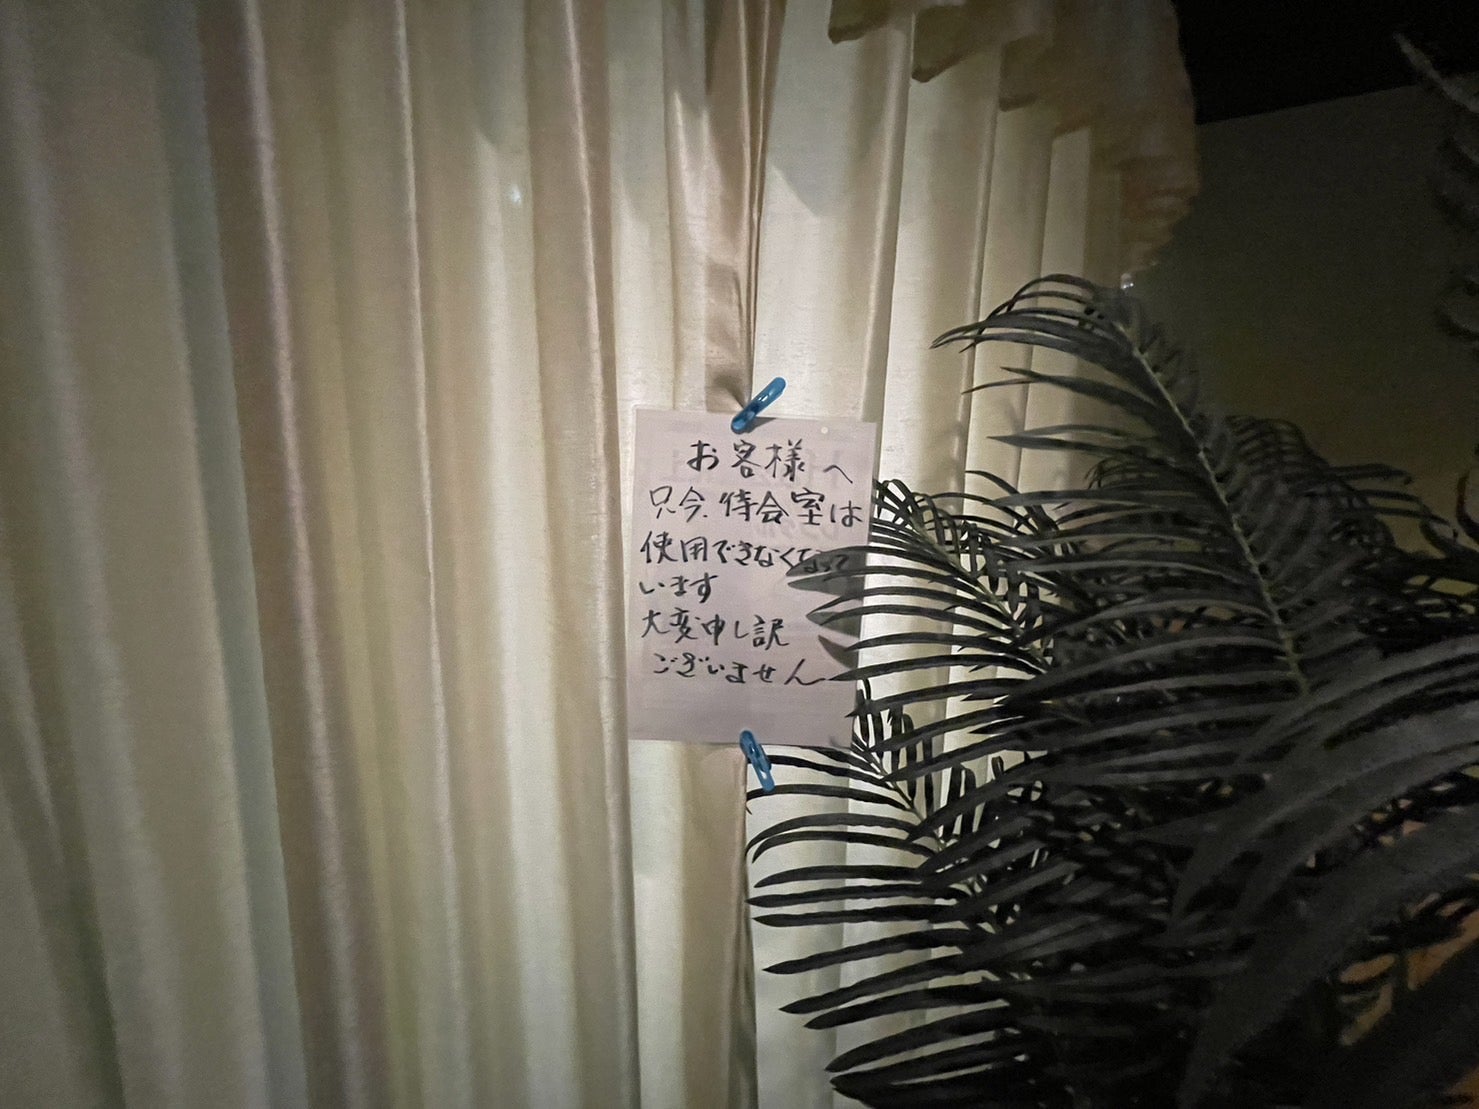 お客様へ
只今、待合室は
使用できなくなって
います
大変申し訳
ございません